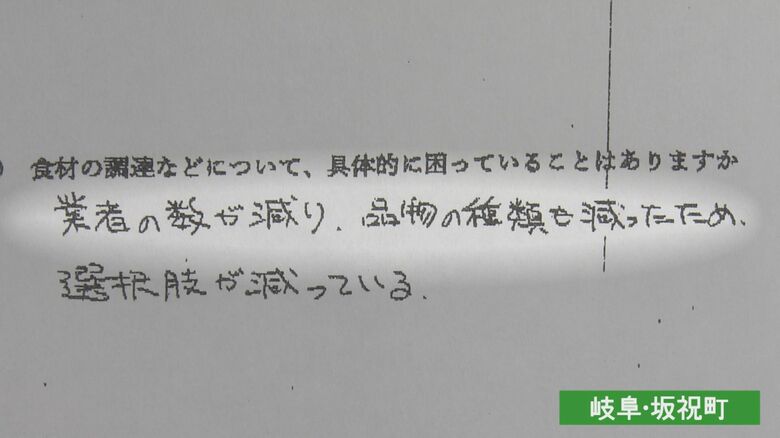 ) 食材の調達などについて、具体的に困っていることはありますか
業者の数が減り、品物の種類も減ったため、
選択肢が減っている。
岐阜・坂祝町